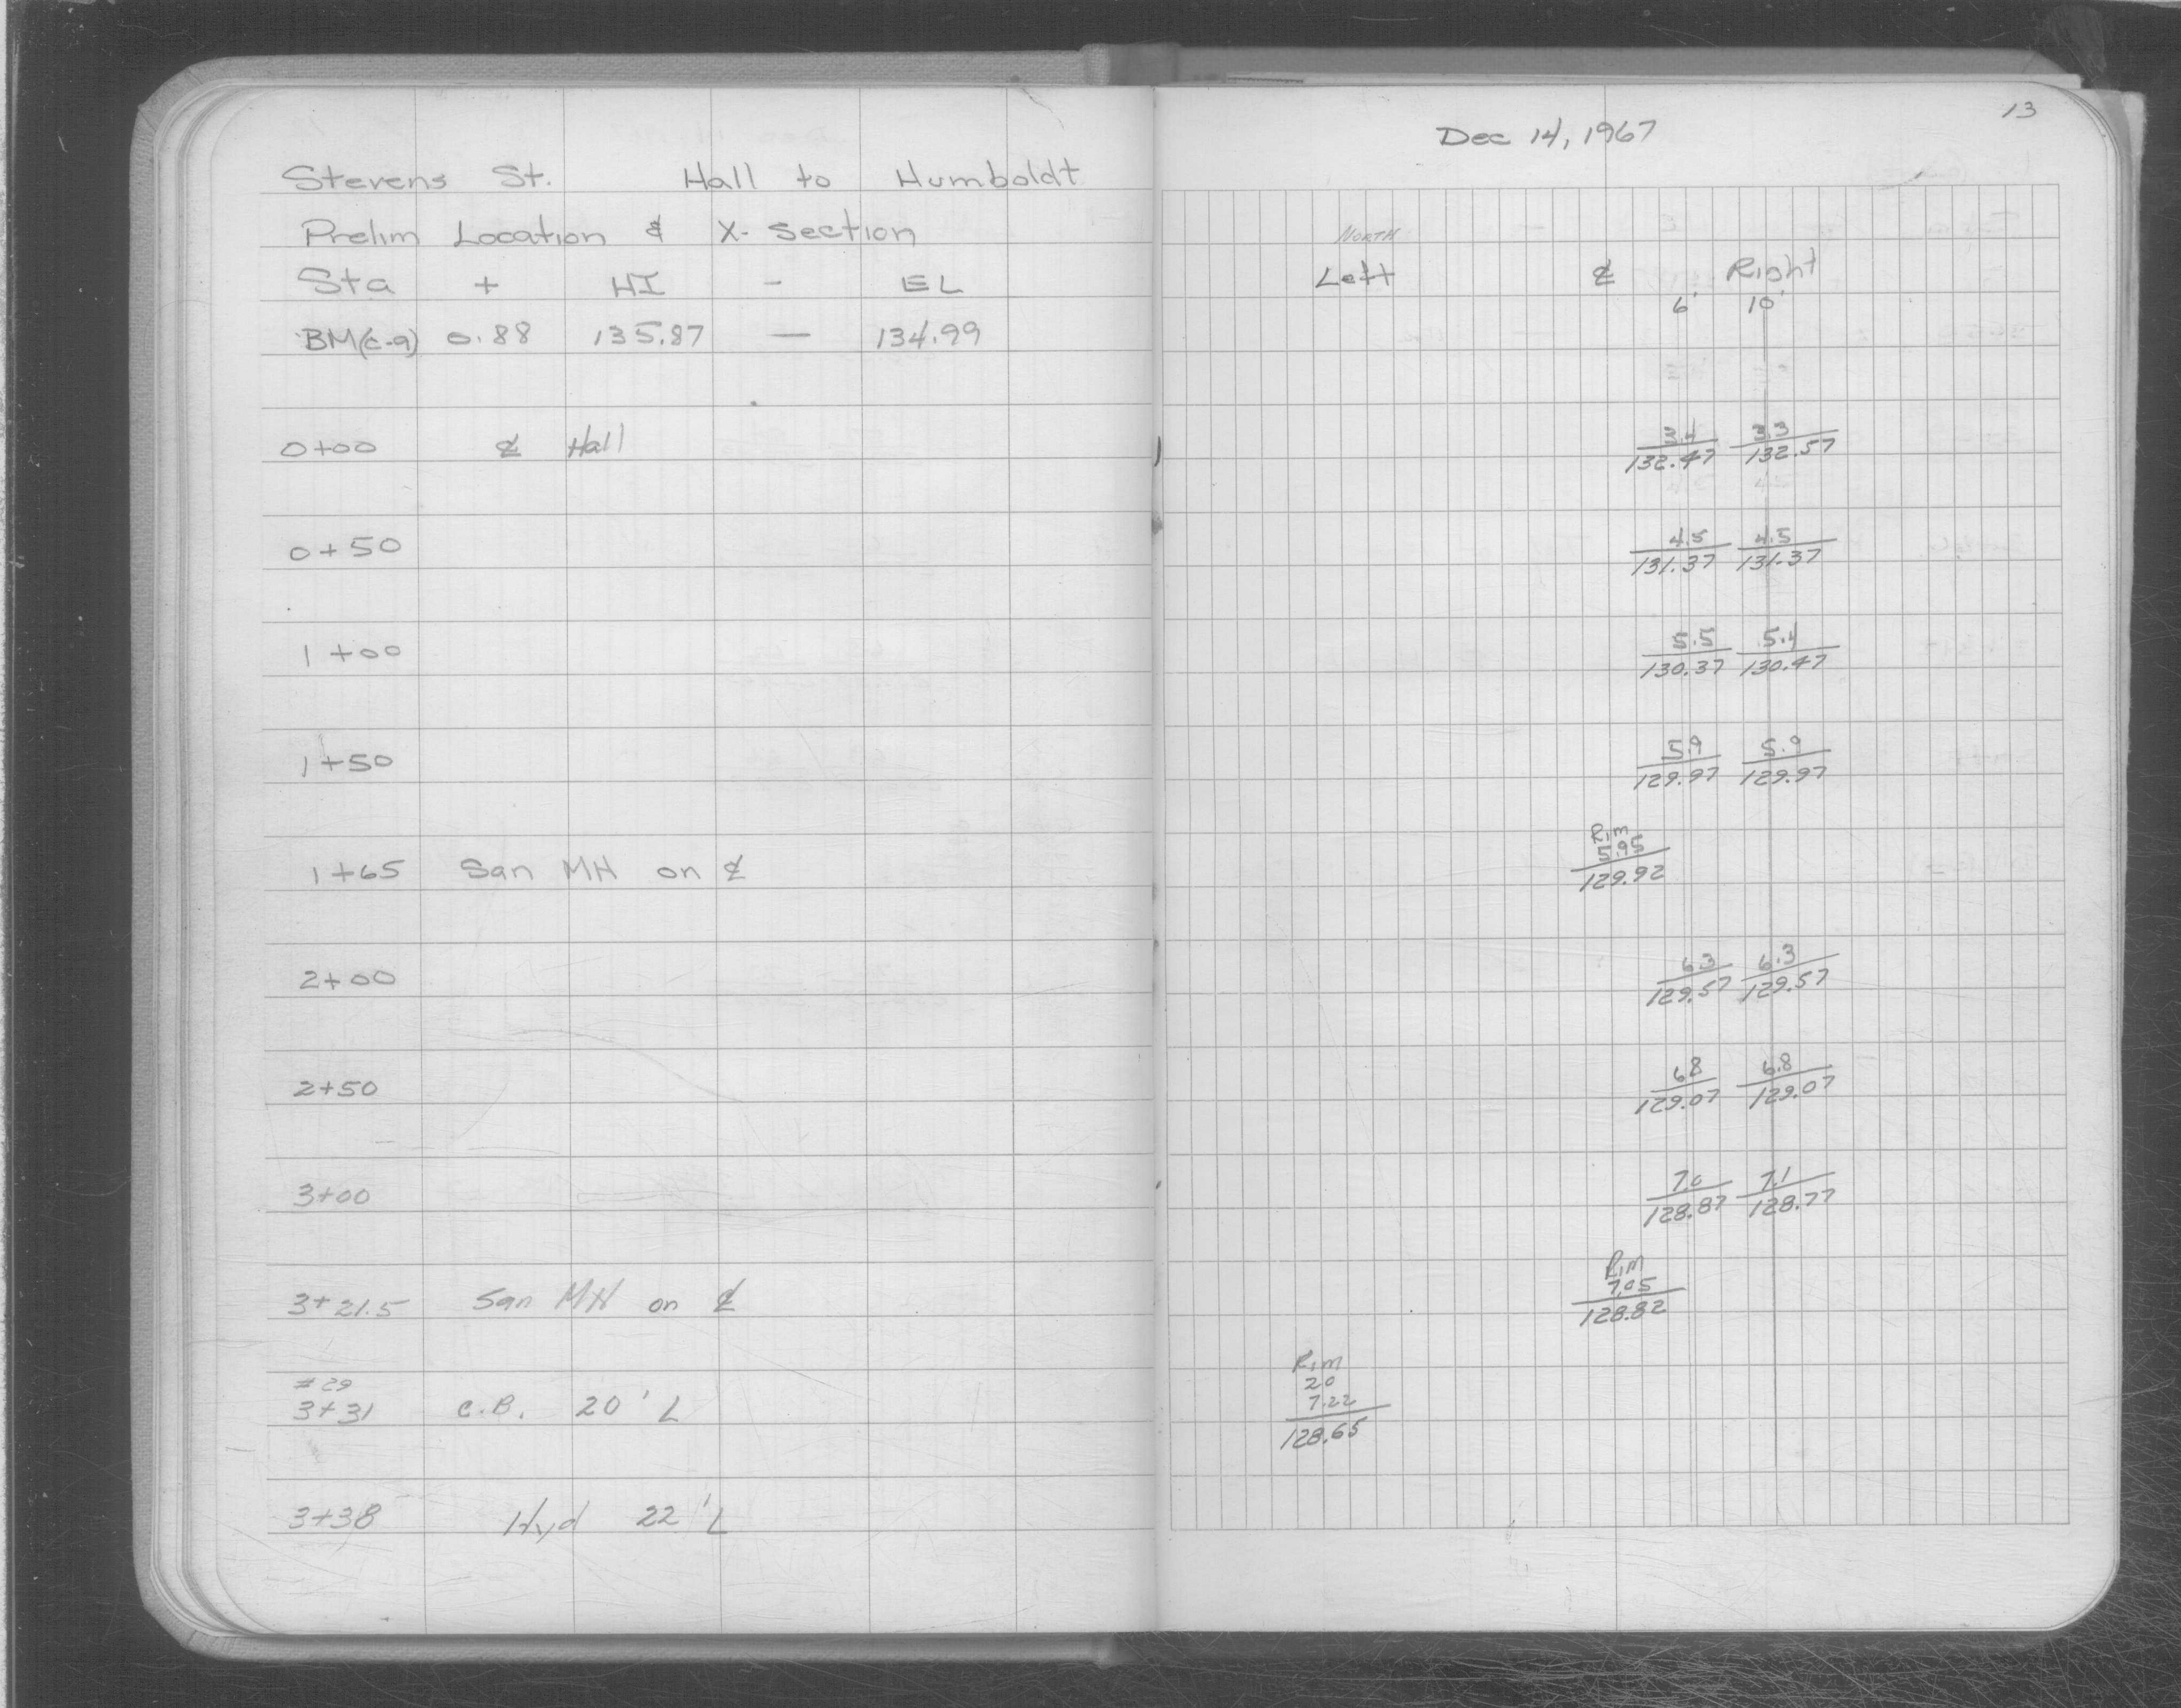 Stevens St. Hall to Humboldt
Prelim Location & X-Section
Sta + HI - EL
BM(c-9) 0.88 135.87 — 134.99
0+00 ℄ Hall
0+50
1+00
1+50
1+65 San MH on ℄
2+00
2+50
3+00
3+21.5 San MH on ℄
#29
3+31 C.B. 20' L
3+38 Hyd 22' L
13
Dec 14, 1967
NORTH
Left ℄ Right
6' 10'
3.4 3.3
132.47 132.57
4.5 4.5
131.37 131.37
5.5 5.4
130.37 130.47
5.9 5.9
129.97 129.97
Rim
5.95
129.92
6.3 6.3
129.57 129.57
6.8 6.8
129.07 129.07
7.0 7.1
128.87 128.77
Rim
7.05
128.82
Rim
20
7.22
128.65